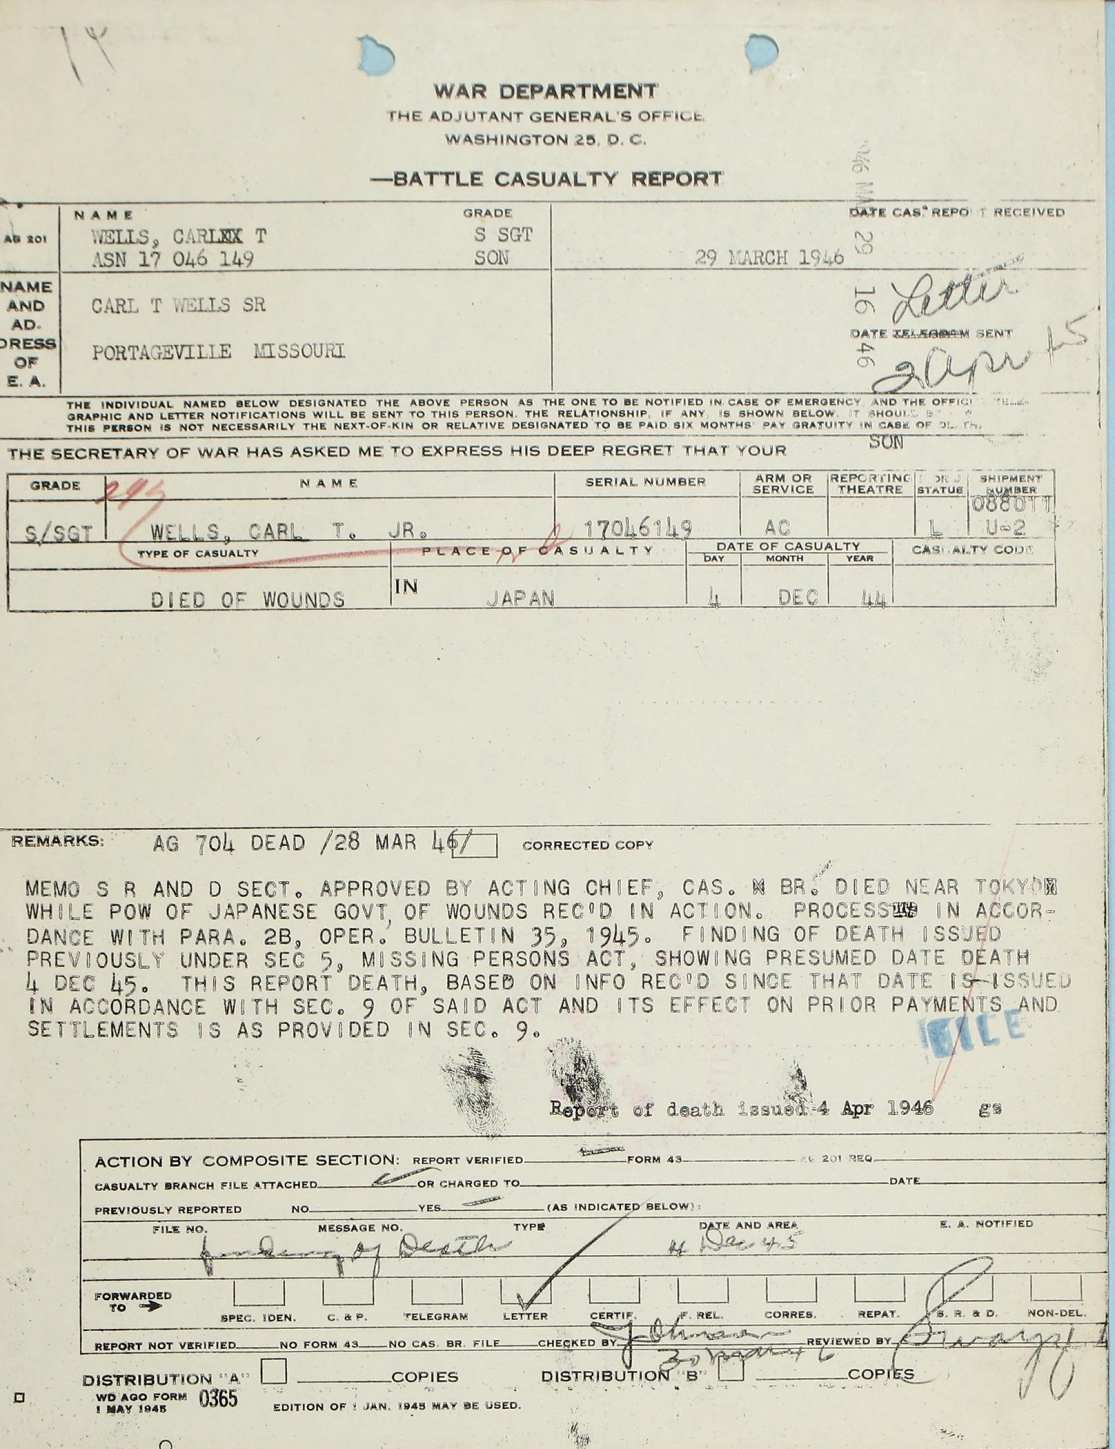 WAR DEPARTMENT
THE ADJUTANT GENERAL'S OFFICE
WASHINGTON 25, D. C.
—BATTLE CASUALTY REPORT
AG 201
NAME
GRADE
DATE CAS. REPORT RECEIVED
WELLS, CARL T
S SGT
ASN 17 046 149
SON
29 MARCH 1946
NAME AND ADDRESS OF E. A.
CARL T WELLS SR
PORTAGEVILLE MISSOURI
29 16 46
Letter
DATE TELEGRAM SENT
2 Apr 45
THE INDIVIDUAL NAMED BELOW DESIGNATED THE ABOVE PERSON AS THE ONE TO BE NOTIFIED IN CASE OF EMERGENCY, AND THE OFFICIAL TELE-
GRAPHIC AND LETTER NOTIFICATIONS WILL BE SENT TO THIS PERSON. THE RELATIONSHIP, IF ANY, IS SHOWN BELOW. IT SHOULD BE
THIS PERSON IS NOT NECESSARILY THE NEXT-OF-KIN OR RELATIVE DESIGNATED TO BE PAID SIX MONTHS' PAY GRATUITY IN CASE OF DEATH.
THE SECRETARY OF WAR HAS ASKED ME TO EXPRESS HIS DEEP REGRET THAT YOUR SON
GRADE
NAME
SERIAL NUMBER
ARM OR SERVICE
REPORTING THEATRE
STATUS
SHIPMENT NUMBER
088011
S/SGT
WELLS, CARL T. JR.
17046149
AC
L
U-2
TYPE OF CASUALTY
PLACE OF CASUALTY
DATE OF CASUALTY
DAY
MONTH
YEAR
CASUALTY CODE
DIED OF WOUNDS
IN
JAPAN
4
DEC
44
REMARKS:
AG 704 DEAD /28 MAR 46/
CORRECTED COPY
MEMO S R AND D SECT. APPROVED BY ACTING CHIEF, CAS. BR. DIED NEAR TOKYO
WHILE POW OF JAPANESE GOVT, OF WOUNDS REC'D IN ACTION. PROCESS IN ACCOR-
DANCE WITH PARA. 2B, OPER. BULLETIN 35, 1945. FINDING OF DEATH ISSUED
PREVIOUSLY UNDER SEC 5, MISSING PERSONS ACT, SHOWING PRESUMED DATE DEATH
4 DEC 45. THIS REPORT DEATH, BASED ON INFO REC'D SINCE THAT DATE IS ISSUED
IN ACCORDANCE WITH SEC. 9 OF SAID ACT AND ITS EFFECT ON PRIOR PAYMENTS AND
SETTLEMENTS IS AS PROVIDED IN SEC. 9.
Report of death issued 4 Apr 1946 gs
ACTION BY COMPOSITE SECTION: REPORT VERIFIED FORM 43 AG 201 REQ
CASUALTY BRANCH FILE ATTACHED OR CHARGED TO DATE
PREVIOUSLY REPORTED NO YES (AS INDICATED BELOW):
FILE NO.
MESSAGE NO.
TYPE
DATE AND AREA
E. A. NOTIFIED
finding of Death
4 Dec 45
FORWARDED TO
SPEC. IDEN.
C. & P.
TELEGRAM
LETTER
CERTIF.
F. REL.
CORRES.
REPAT.
S. R. & D.
NON-DEL.
REPORT NOT VERIFIED NO FORM 43 NO CAS. BR. FILE CHECKED BY Johnson REVIEWED BY
DISTRIBUTION "A" COPIES
DISTRIBUTION "B" COPIES
WD AGO FORM 1 MAY 1945 0365
EDITION OF 1 JAN. 1945 MAY BE USED.